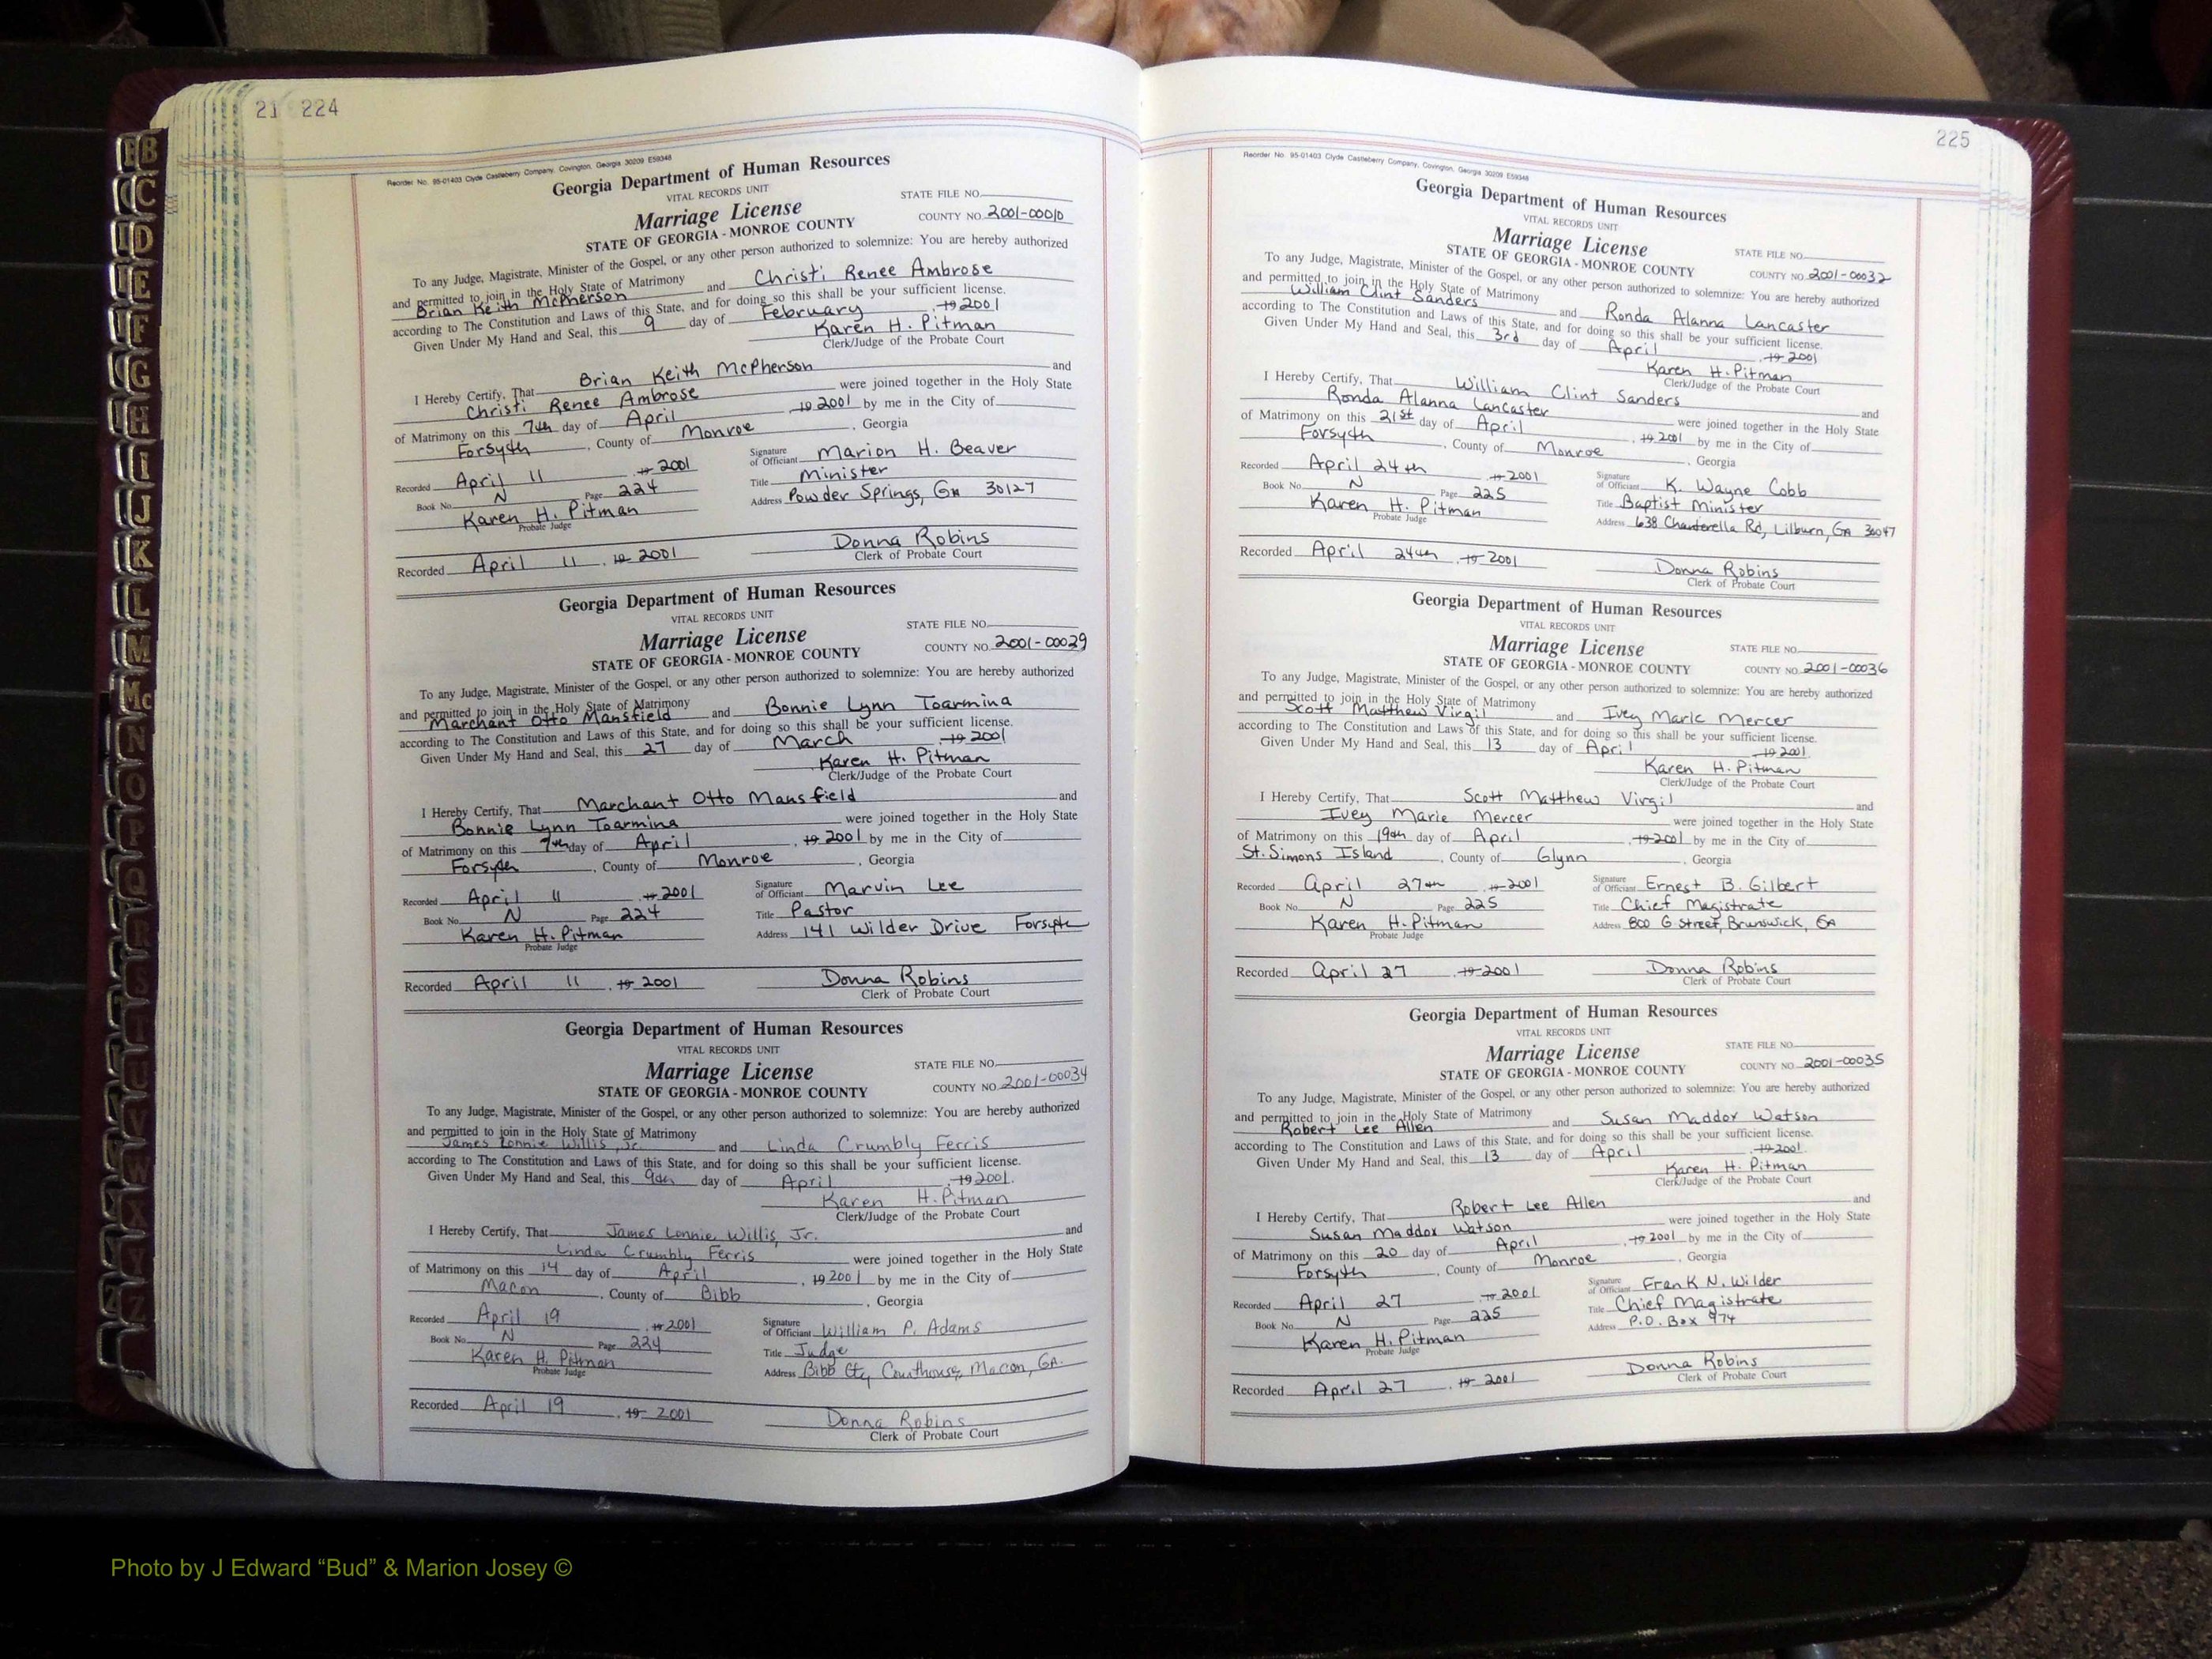 21 224
Reorder No. 95-01403 Clyde Castleberry Company, Covington, Georgia 30209 E59348
Georgia Department of Human Resources
VITAL RECORDS UNIT
Marriage License
STATE FILE NO.
STATE OF GEORGIA - MONROE COUNTY
COUNTY NO. 2001-00010
To any Judge, Magistrate, Minister of the Gospel, or any other person authorized to solemnize: You are hereby authorized
and permitted to join in the Holy State of Matrimony
Brian Keith McPherson and Christi Renee Ambrose
according to The Constitution and Laws of this State, and for doing so this shall be your sufficient license.
Given Under My Hand and Seal, this 9 day of February , 19 2001
Karen H. Pitman
Clerk/Judge of the Probate Court
I Hereby Certify, That Brian Keith McPherson and
Christi Renee Ambrose were joined together in the Holy State
of Matrimony on this 7th day of April , 19 2001 by me in the City of
Forsyth , County of Monroe , Georgia
Recorded April 11 , 19 2001
Signature of Officiant Marion H. Beaver
Book No. N Page 224
Title Minister
Karen H. Pitman
Probate Judge
Address Powder Springs, GA 30127
Recorded April 11 , 19 2001
Donna Robins
Clerk of Probate Court
Georgia Department of Human Resources
VITAL RECORDS UNIT
Marriage License
STATE FILE NO.
STATE OF GEORGIA - MONROE COUNTY
COUNTY NO. 2001-00029
To any Judge, Magistrate, Minister of the Gospel, or any other person authorized to solemnize: You are hereby authorized
and permitted to join in the Holy State of Matrimony
Marchant Otto Mansfield and Bonnie Lynn Toarmina
according to The Constitution and Laws of this State, and for doing so this shall be your sufficient license.
Given Under My Hand and Seal, this 27 day of March , 19 2001
Karen H. Pitman
Clerk/Judge of the Probate Court
I Hereby Certify, That Marchant Otto Mansfield and
Bonnie Lynn Toarmina were joined together in the Holy State
of Matrimony on this 7th day of April , 19 2001 by me in the City of
Forsyth , County of Monroe , Georgia
Recorded April 11 , 19 2001
Signature of Officiant Marvin Lee
Book No. N Page 224
Title Pastor
Karen H. Pitman
Probate Judge
Address 141 Wilder Drive Forsyth
Recorded April 11 , 19 2001
Donna Robins
Clerk of Probate Court
Georgia Department of Human Resources
VITAL RECORDS UNIT
Marriage License
STATE FILE NO.
STATE OF GEORGIA - MONROE COUNTY
COUNTY NO. 2001-00034
To any Judge, Magistrate, Minister of the Gospel, or any other person authorized to solemnize: You are hereby authorized
and permitted to join in the Holy State of Matrimony
James Lonnie Willis, Jr. and Linda Crumbly Ferris
according to The Constitution and Laws of this State, and for doing so this shall be your sufficient license.
Given Under My Hand and Seal, this 9th day of April , 19 2001.
Karen H. Pitman
Clerk/Judge of the Probate Court
I Hereby Certify, That James Lonnie Willis, Jr. and
Linda Crumbly Ferris were joined together in the Holy State
of Matrimony on this 14 day of April , 19 2001 by me in the City of
Macon , County of Bibb , Georgia
Recorded April 19 , 19 2001
Signature of Officiant William P. Adams
Book No. N Page 224
Title Judge
Karen H. Pitman
Probate Judge
Address Bibb Cty Courthouse, Macon, GA.
Recorded April 19 , 19 2001
Donna Robins
Clerk of Probate Court
225
Reorder No. 95-01403 Clyde Castleberry Company, Covington, Georgia 30209 E59348
Georgia Department of Human Resources
VITAL RECORDS UNIT
Marriage License
STATE FILE NO.
STATE OF GEORGIA - MONROE COUNTY
COUNTY NO. 2001-00032
To any Judge, Magistrate, Minister of the Gospel, or any other person authorized to solemnize: You are hereby authorized
and permitted to join in the Holy State of Matrimony
William Clint Sanders and Ronda Alanna Lancaster
according to The Constitution and Laws of this State, and for doing so this shall be your sufficient license.
Given Under My Hand and Seal, this 3rd day of April , 19 2001
Karen H. Pitman
Clerk/Judge of the Probate Court
I Hereby Certify, That William Clint Sanders and
Ronda Alanna Lancaster were joined together in the Holy State
of Matrimony on this 21st day of April , 19 2001 by me in the City of
Forsyth , County of Monroe , Georgia
Recorded April 24th , 19 2001
Signature of Officiant K. Wayne Cobb
Book No. N Page 225
Title Baptist Minister
Karen H. Pitman
Probate Judge
Address 638 Chanterella Rd, Lilburn, GA 30047
Recorded April 24th , 19 2001
Donna Robins
Clerk of Probate Court
Georgia Department of Human Resources
VITAL RECORDS UNIT
Marriage License
STATE FILE NO.
STATE OF GEORGIA - MONROE COUNTY
COUNTY NO. 2001-00036
To any Judge, Magistrate, Minister of the Gospel, or any other person authorized to solemnize: You are hereby authorized
and permitted to join in the Holy State of Matrimony
Scott Matthew Virgil and Ivey Marie Mercer
according to The Constitution and Laws of this State, and for doing so this shall be your sufficient license.
Given Under My Hand and Seal, this 13 day of April , 19 2001.
Karen H. Pitman
Clerk/Judge of the Probate Court
I Hereby Certify, That Scott Matthew Virgil and
Ivey Marie Mercer were joined together in the Holy State
of Matrimony on this 19th day of April , 19 2001 by me in the City of
St. Simons Island , County of Glynn , Georgia
Recorded April 27th , 19 2001
Signature of Officiant Ernest B. Gilbert
Book No. N Page 225
Title Chief Magistrate
Karen H. Pitman
Probate Judge
Address 800 G Street, Brunswick, GA
Recorded April 27 , 19 2001
Donna Robins
Clerk of Probate Court
Georgia Department of Human Resources
VITAL RECORDS UNIT
Marriage License
STATE FILE NO.
STATE OF GEORGIA - MONROE COUNTY
COUNTY NO. 2001-00035
To any Judge, Magistrate, Minister of the Gospel, or any other person authorized to solemnize: You are hereby authorized
and permitted to join in the Holy State of Matrimony
Robert Lee Allen and Susan Maddox Watson
according to The Constitution and Laws of this State, and for doing so this shall be your sufficient license.
Given Under My Hand and Seal, this 13 day of April , 19 2001.
Karen H. Pitman
Clerk/Judge of the Probate Court
I Hereby Certify, That Robert Lee Allen and
Susan Maddox Watson were joined together in the Holy State
of Matrimony on this 20 day of April , 19 2001 by me in the City of
Forsyth , County of Monroe , Georgia
Recorded April 27 , 19 2001
Signature of Officiant Frank N. Wilder
Book No. N Page 225
Title Chief Magistrate
Karen H. Pitman
Probate Judge
Address P.O. Box 974
Recorded April 27 , 19 2001
Donna Robins
Clerk of Probate Court
B
C
D
E
F
G
H
I
J
K
L
M
Mc
N
O
P
Q
R
S
T
U
V
W
X
Y
Z
Photo by J Edward “Bud” & Marion Josey ©